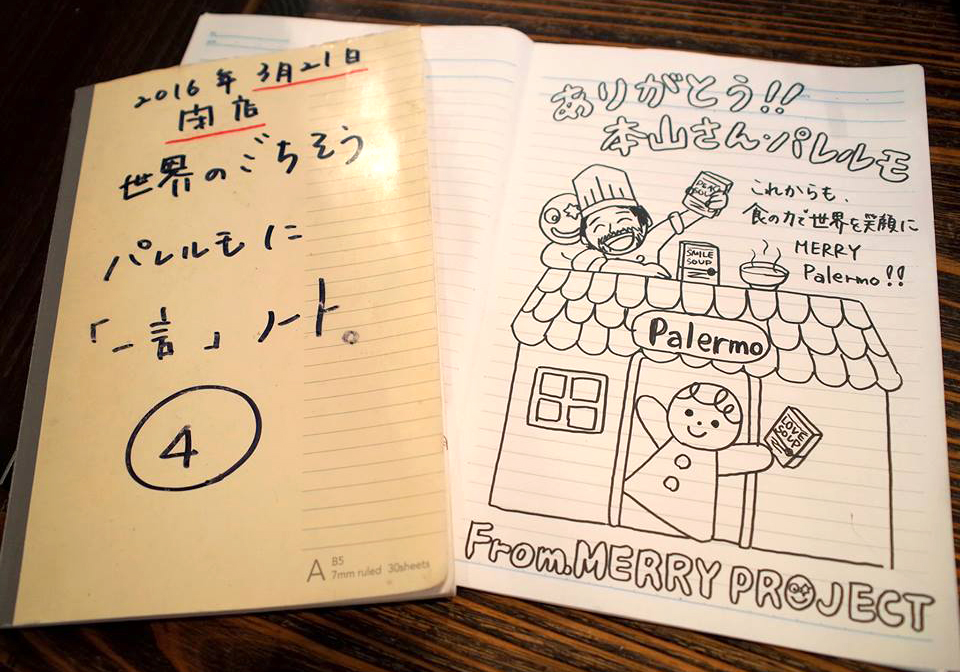 2016年 3月21日
閉店
世界のごちそう
パレルモに
「一言」ノート。
4
A B5
7mm ruled 30sheets
ありがとう!!
本山さん・パレルモ
これからも、
食の力で世界を笑顔に
MERRY
Palermo!!
SMILE
SOUP
Palermo
LOVE
SOUP
From.MERRY PROJECT